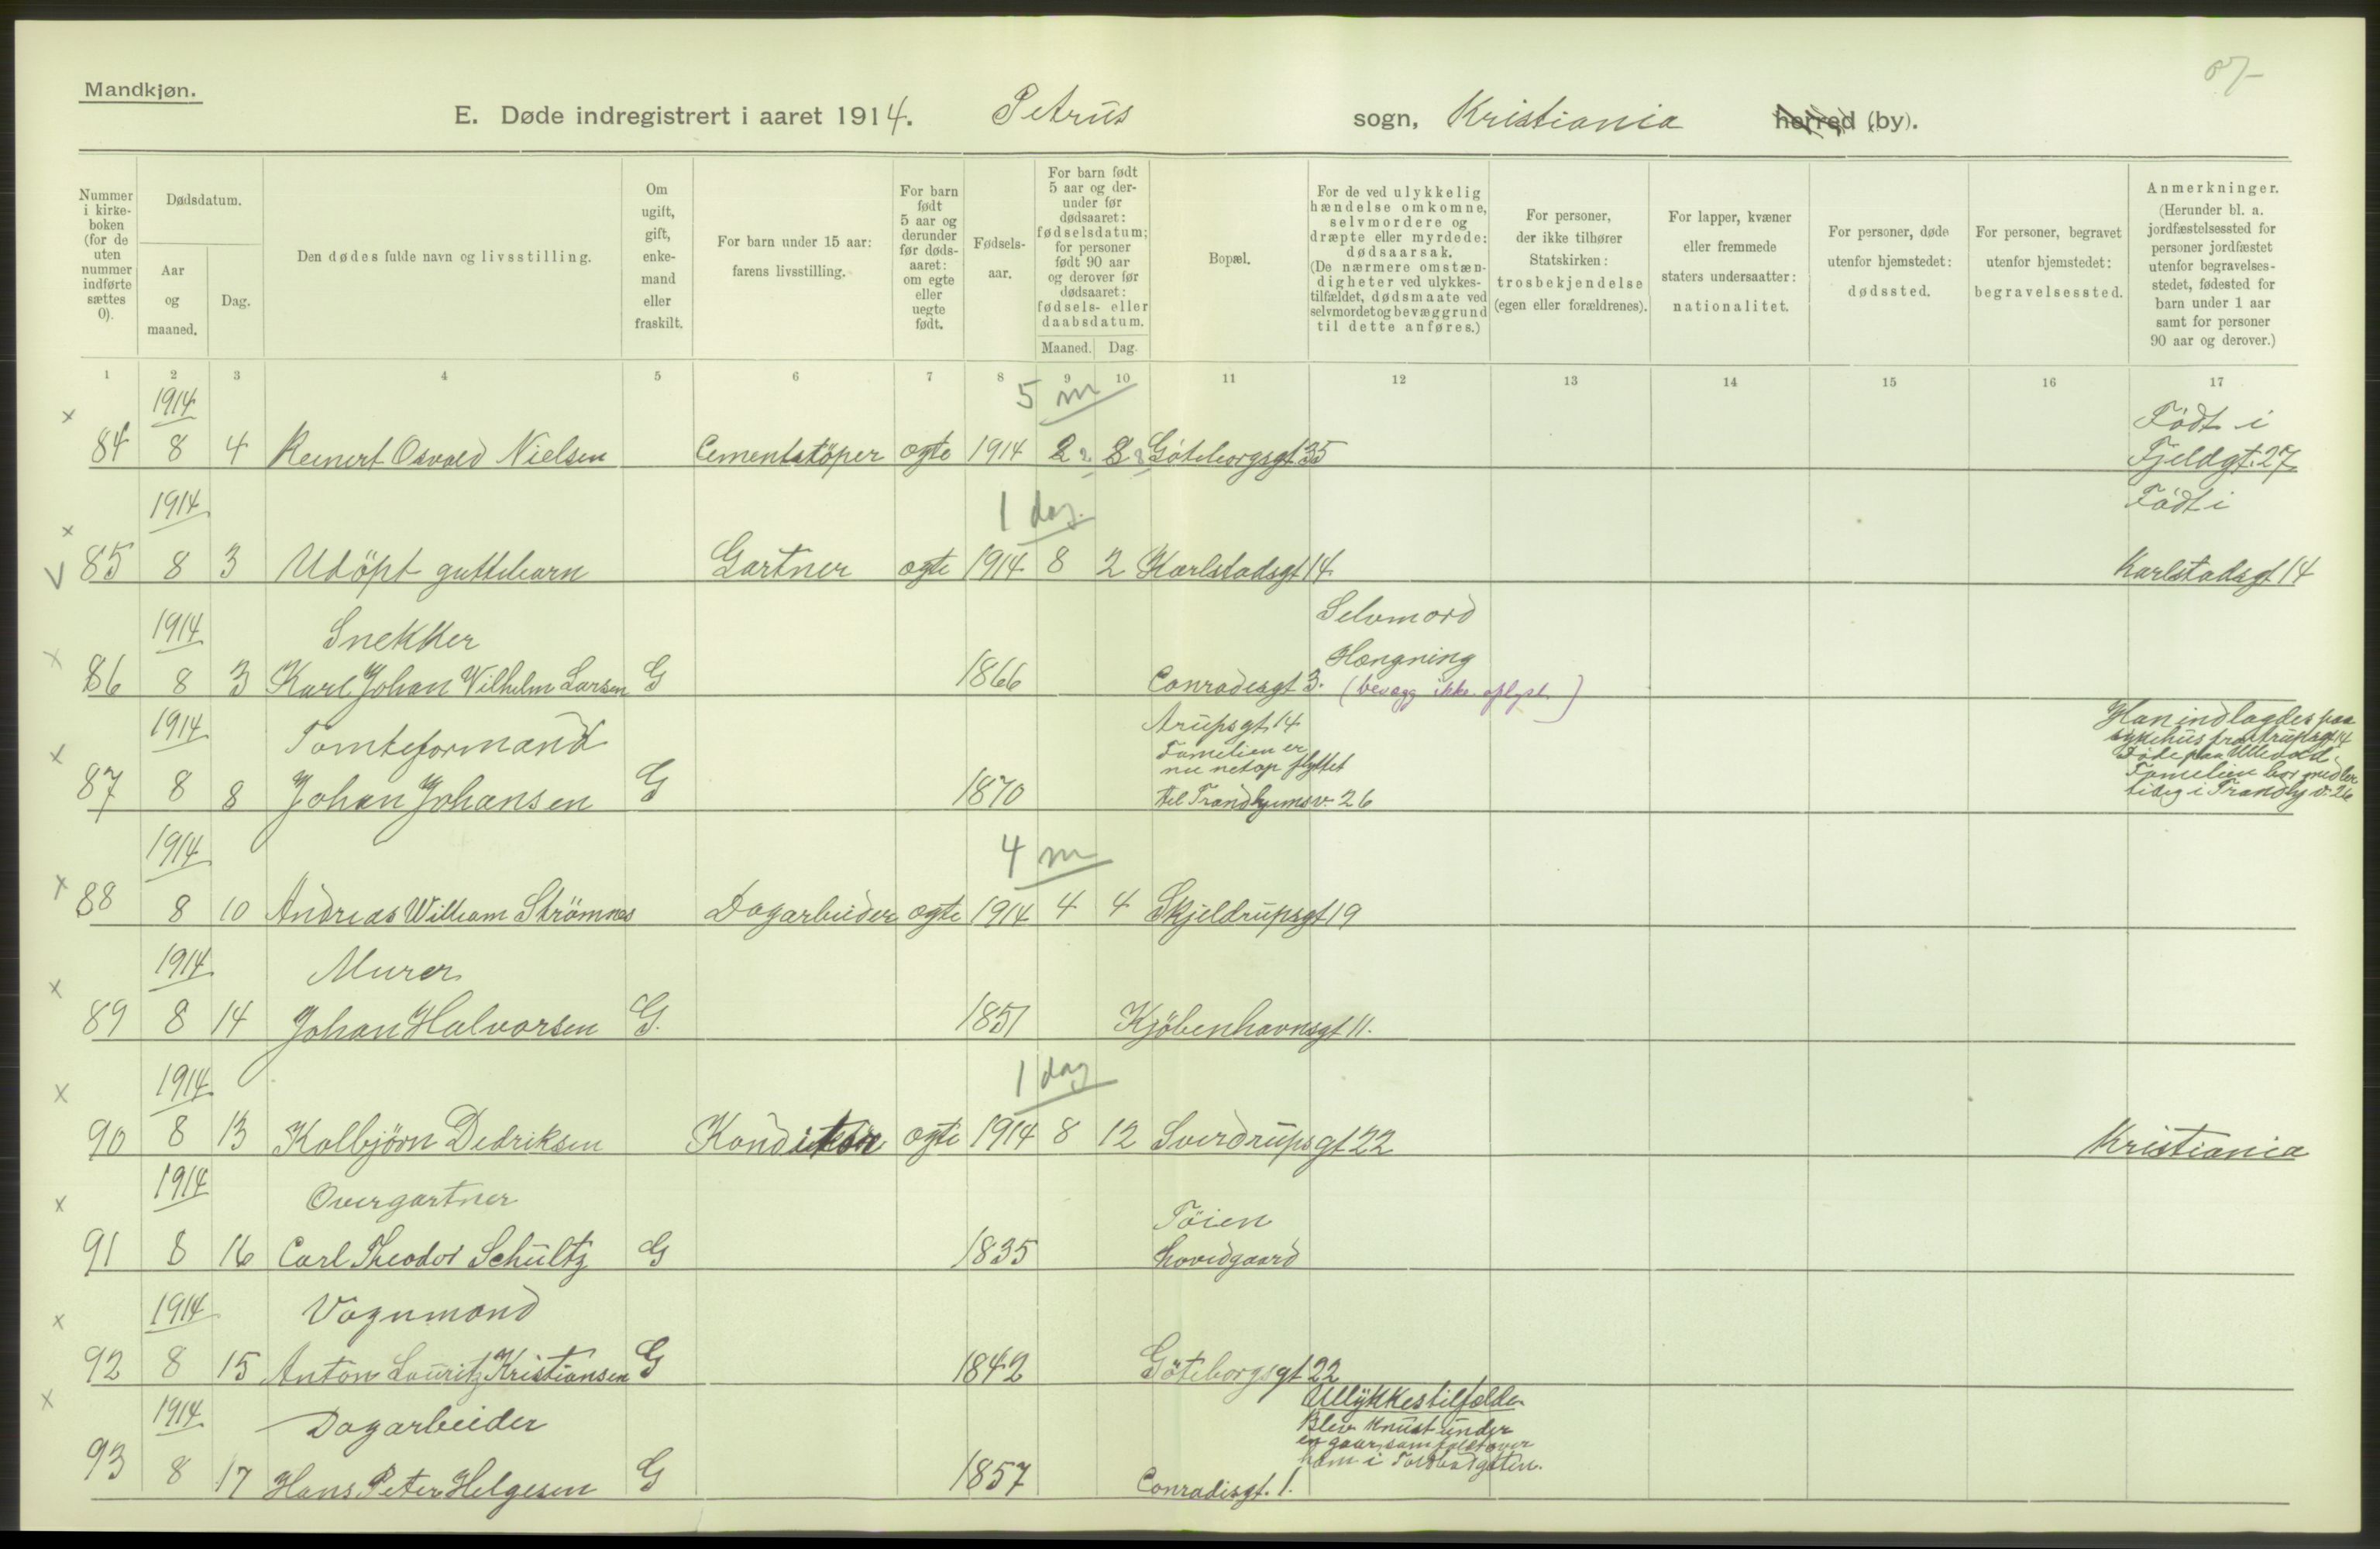 87
Mandkjøn.
E. Døde indregistrert i aaret 1914. Petrus sogn, Kristiania herred (by).
Nummer i kirke- boken (for de uten nummer indførte sættes 0).
Dødsdatum.
Aar og maaned.
Dag.
Den dødes fulde navn og livsstilling.
Om ugift, gift, enke- mand eller fraskilt.
For barn under 15 aar: farens livsstilling.
For barn født 5 aar og derunder før døds- aaret: om egte eller uegte født.
Fødsels- aar.
For barn født 5 aar og der- under før dødsaaret: fødselsdatum; for personer født 90 aar og derover før dødsaaret: fødsels- eller daabsdatum.
Maaned. Dag.
Bopæl.
For de ved ulykkelig hændelse omkomne, selvmordere og dræpte eller myrdede: dødsaarsak. (De nærmere omstæn- digheter ved ulykkes- tilfældet, dødsmaate ved selvmordet og bevæggrund til dette anføres.)
For personer, der ikke tilhører Statskirken: trosbekjendelse (egen eller forældrenes).
For lapper, kvæner eller fremmede staters undersaatter: nationalitet.
For personer, døde utenfor hjemstedet: dødssted.
For personer, begravet utenfor hjemstedet: begravelsessted.
Anmerkninger. (Herunder bl. a. jordfæstelsessted for personer jordfæstet utenfor begravelses- stedet, fødested for barn under 1 aar samt for personer 90 aar og derover.)
1 2 3 4 5 6 7 8 9 10 11 12 13 14 15 16 17
x 1914 5 m Födt i
84 8 4 Reinert Osvald Nielsen Cementstöper egte 1914 2 2 8 8 Göteborgsgt 35 Fjeldgt. 27
x 1914 1 dag. Födt i
V 85 8 3 Udöpt guttebarn Gartner egte 1914 8 2 Karlstadsgt 14 Karlstadsgt 14
1914 Snekker Selvmord
x Hængning
86 8 3 Karl Johan Wilhelm Larsen G 1866 Conradisgt 3. (bevægg ikke oplyst.)
1914 Tomteformand Arupsgt. 14 Han indlagdes paa
x Familien er sykehus fra Arupsgt 14
nu netop flyttet Döde paa Ullevaal.
87 8 8 Johan Johansen G 1870 til Trondhjemsv. 26 Familien bor midler
tidig i Trondhj v. 26
1914 4 m
x 88 8 10 Andreas William Strömnes Dagarbeider egte 1914 4 4 Skjeldrupsgt 19
1914 Murer
x 89 8 14 Johan Halvorsen G. 1851 Kjöbenhavnsgt 11.
x 1914 1 dag
90 8 13 Kolbjörn Dedriksen Konditor egte 1914 8 12 Sverdrupsgt 22 Kristiania
x 1914 Overgartner Töien
91 8 16 Carl Theodor Schultz G 1835 hovedgaard
x 1914 Vognmand
92 8 15 Anton Lauritz Kristiansen G 1842 Göteborgsgt 22
x 1914 Dagarbeider Ullykkestilfælde.
Blev knust under
en gaar som faldt over
ham i Toldbodgaten.
93 8 17 Hans Peter Helgesen G 1857 Conradisgt. 1.